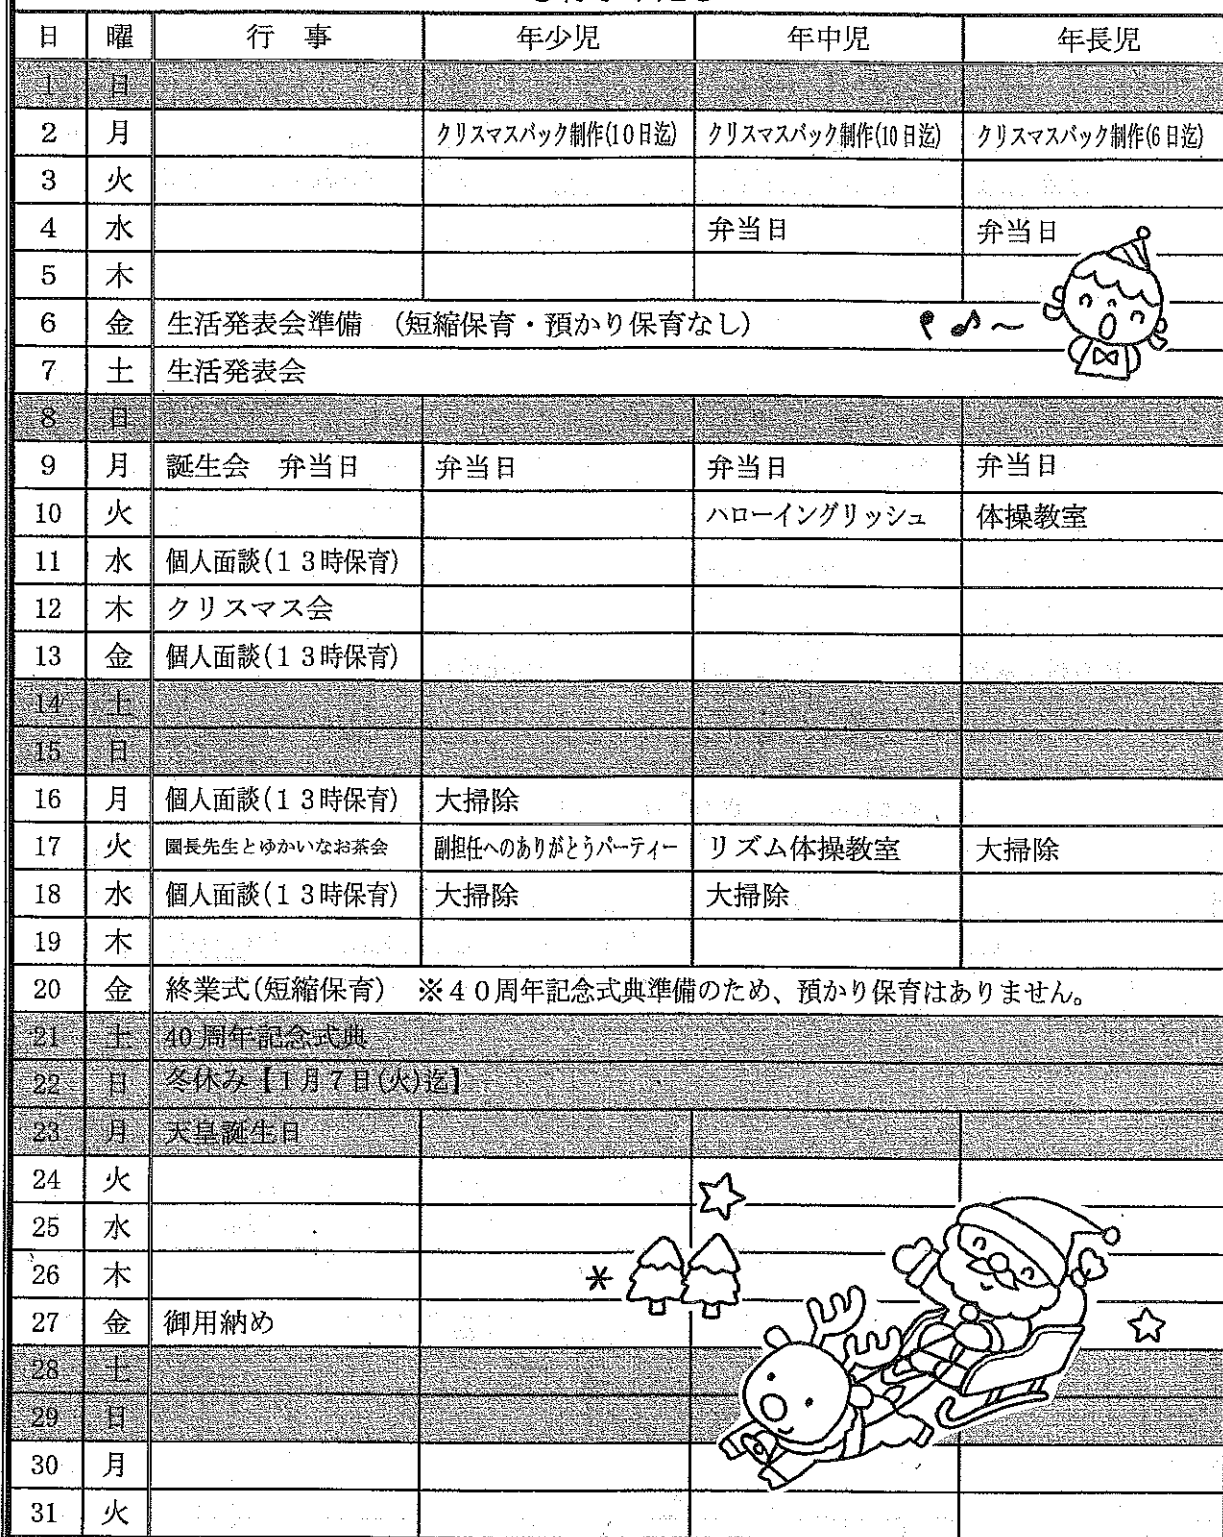 日 曜 行 事 年少児 年中児 年長児
1 日
2 月 クリスマスバック制作(10日迄) クリスマスバック制作(10日迄) クリスマスバック制作(6日迄)
3 火
4 水 弁当日 弁当日
5 木
6 金 生活発表会準備 (短縮保育・預かり保育なし)
7 土 生活発表会
8 日
9 月 誕生会 弁当日 弁当日 弁当日 弁当日
10 火 ハローイングリッシュ 体操教室
11 水 個人面談(13時保育)
12 木 クリスマス会
13 金 個人面談(13時保育)
14 土
15 日
16 月 個人面談(13時保育) 大掃除
17 火 園長先生とゆかいなお茶会 副担任へのありがとうパーティー リズム体操教室 大掃除
18 水 個人面談(13時保育) 大掃除 大掃除
19 木
20 金 終業式(短縮保育) ※40周年記念式典準備のため、預かり保育はありません。
21 土 40周年記念式典
22 日 冬休み【1月7日(火)迄】
23 月 天皇誕生日
24 火
25 水
26 木
27 金 御用納め
28 土
29 日
30 月
31 火